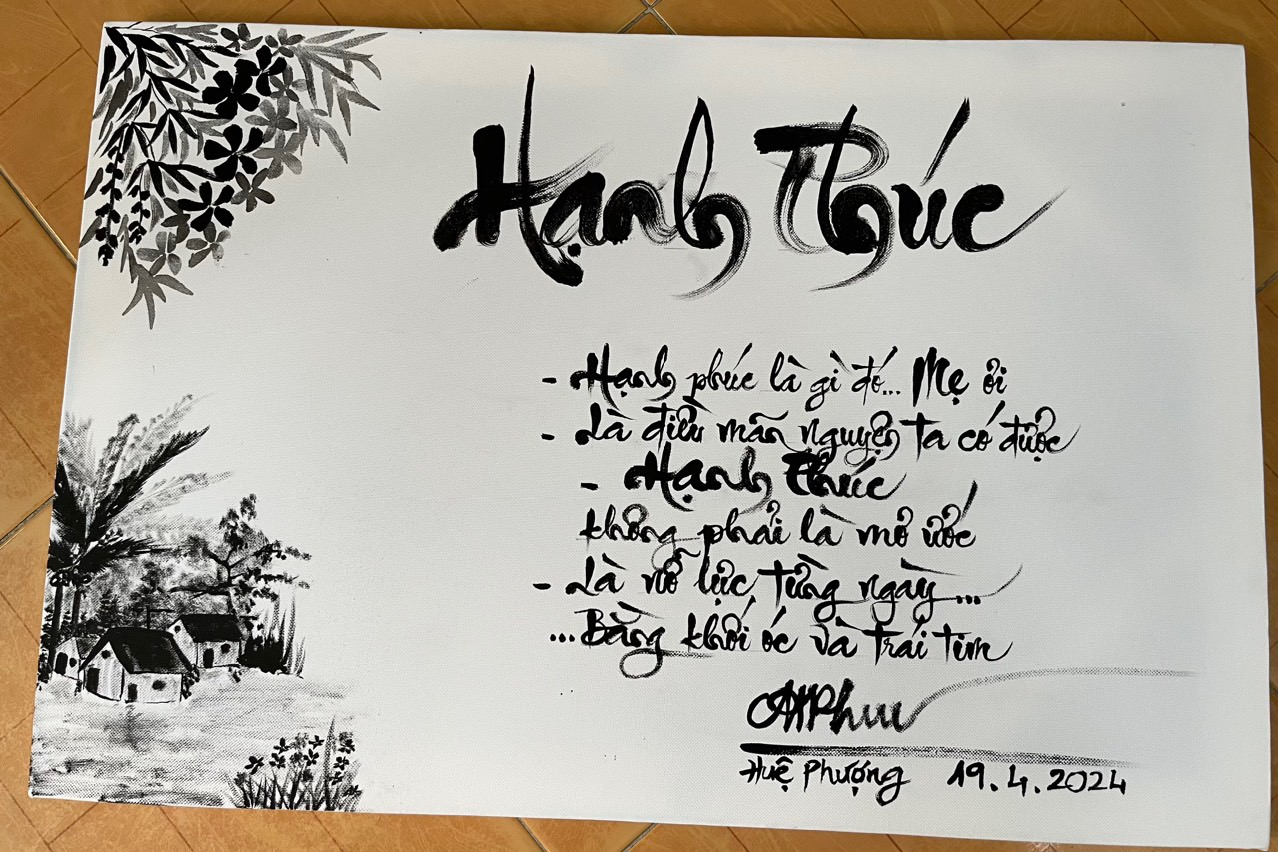 Hạnh Phúc
- Hạnh phúc là gì đó... Mẹ ơi
- Là điều mãn nguyện ta có được
- Hạnh Phúc
không phải là mơ ước
- Là nỗ lực từng ngày...
...Bằng khối óc và trái tim
Huệ Phượng 19.4.2024